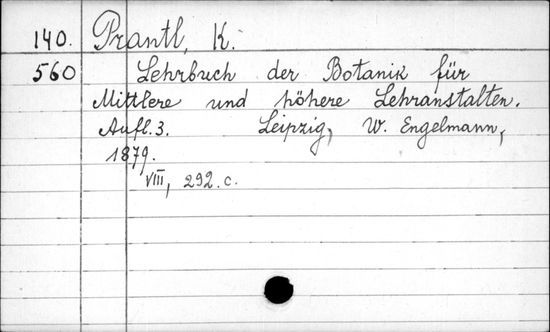 140. Prantl, K.
560 Lehrbuch der Botanik für
Mittlere und höhere Lehranstalten.
Aufl. 3. Leipzig, W. Engelmann,
1879.
VIII, 292 c.